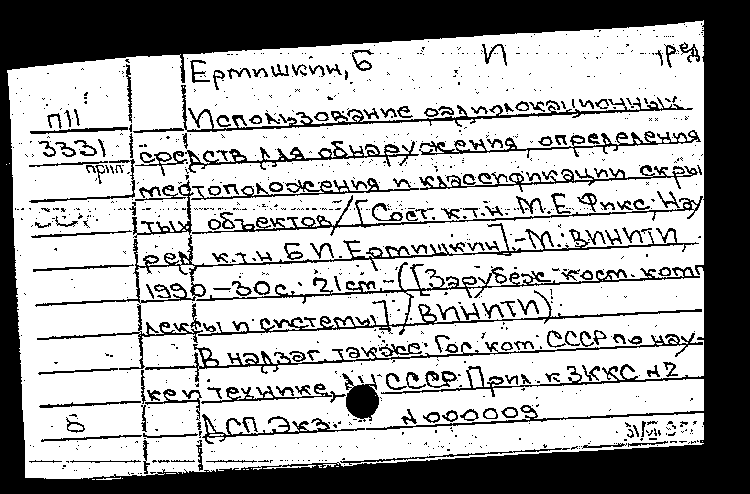 Ермишкин, Б И , ред.
П11
Использование радиолокационных
3331
средств для обнаружения, определения
прил
местоположения и классификации скры
тых объектов/[Сост. к.т.н. М.Е. Фикс, Нау
ред к.т.н. Б.И. Ермишкин].-М.: ВИНИТИ,
1990.-30с.; 21см.-([Зарубеж. косм. комп
лексы и системы] / ВИНИТИ).
В надзаг. также: Гос. ком. СССР по нау-
ке и технике, АН СССР. Прил. к ЗККС №7.
б ДСП. Экз. №000009